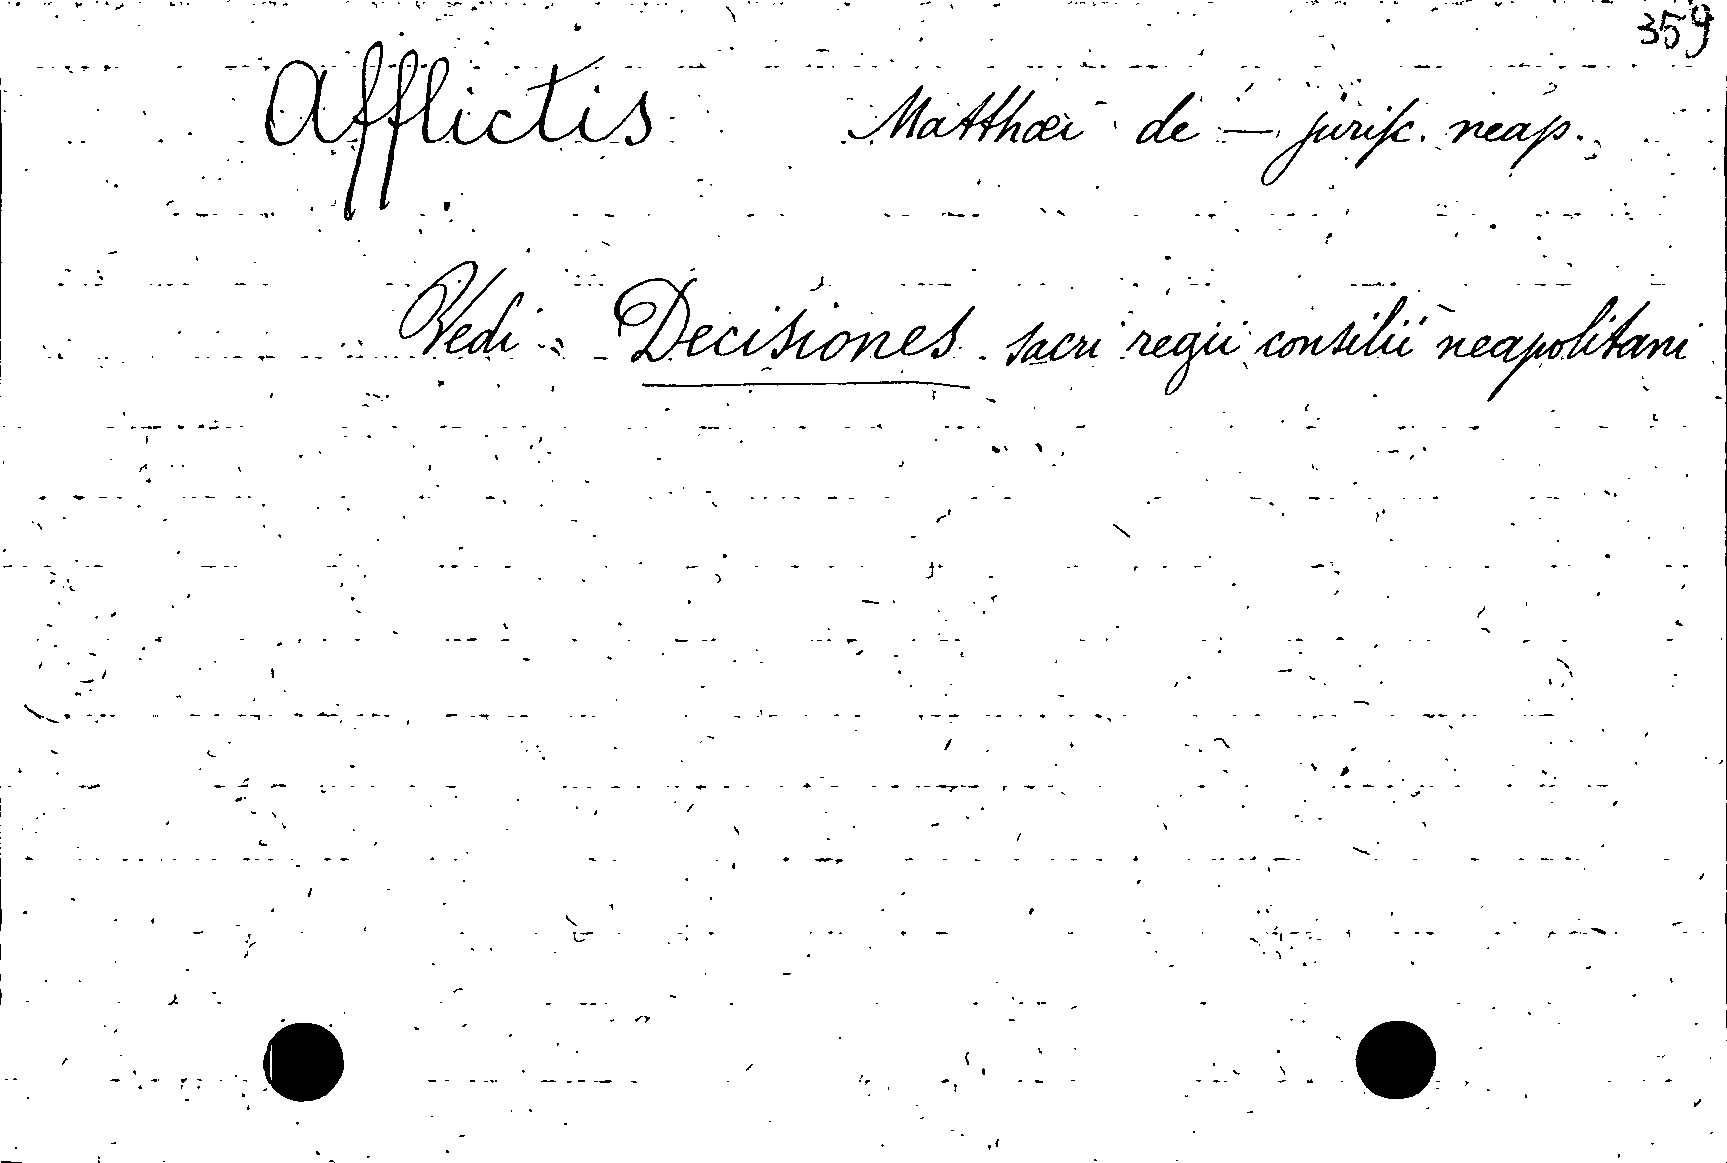 359
Afflictis Matthæi de — jurisc. neap.
Vedi - Decisiones sacri regii consilii neapolitani